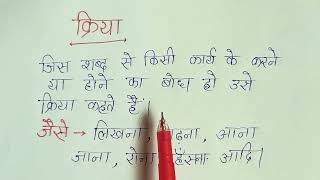 क्रिया
जिस शब्द से किसी कार्य के करने
या होने का बोध हो उसे
क्रिया कहते हैं।
जैसे → लिखना, पढ़ना, आना
जाना, रोना, हँसना आदि।